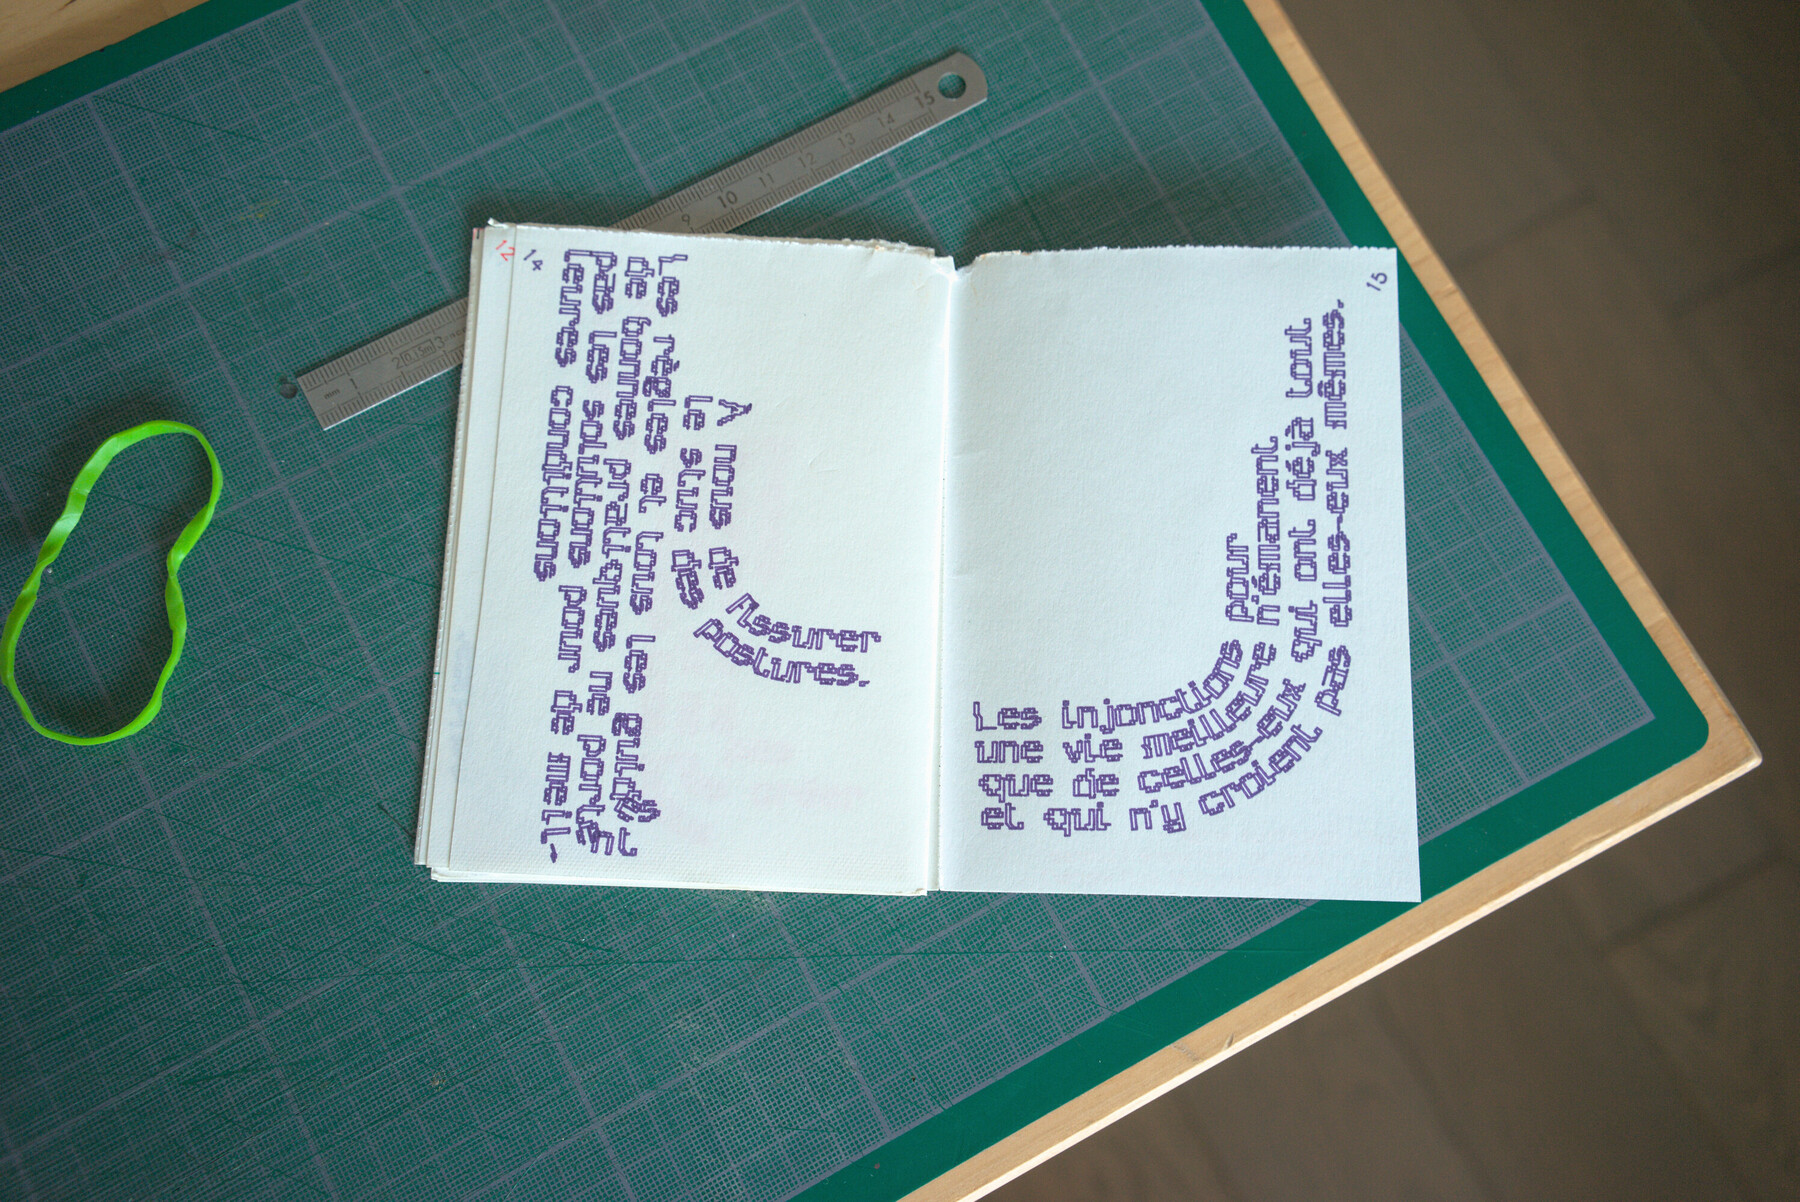 12
14
Les règles et tous les
de bonnes pratiques ne
pas les solutions pour de meil-
leures conditions
À nous de Assurer
le stuc des postures.
15
Les injonctions pour
une vie meilleure n'émanent
que de celles-eux qui ont déjà tout
et qui n'y croient pas elles-eux mêmes.
mm 1 2 3 9 10 11 12 13 14 15